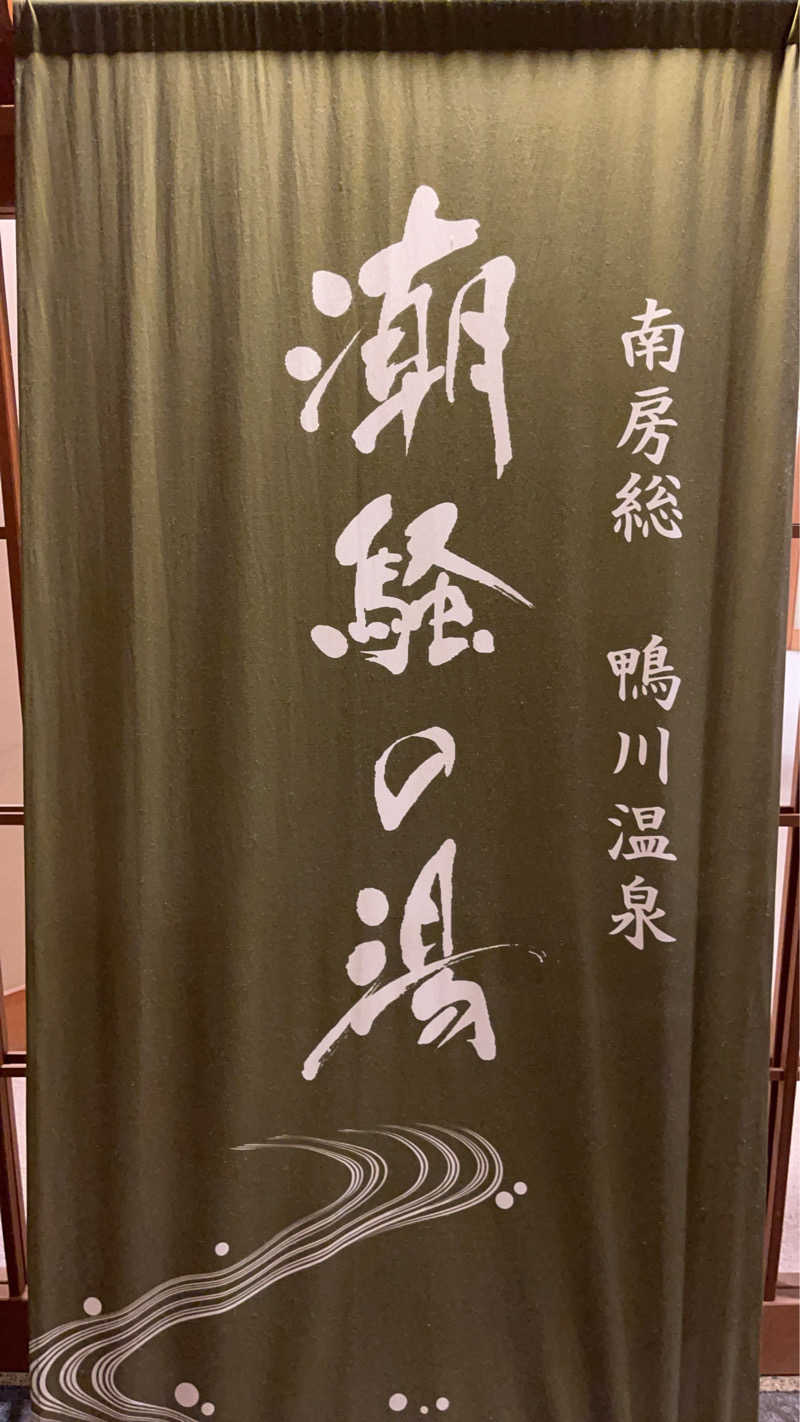 南房総 鴨川温泉
潮騒の湯